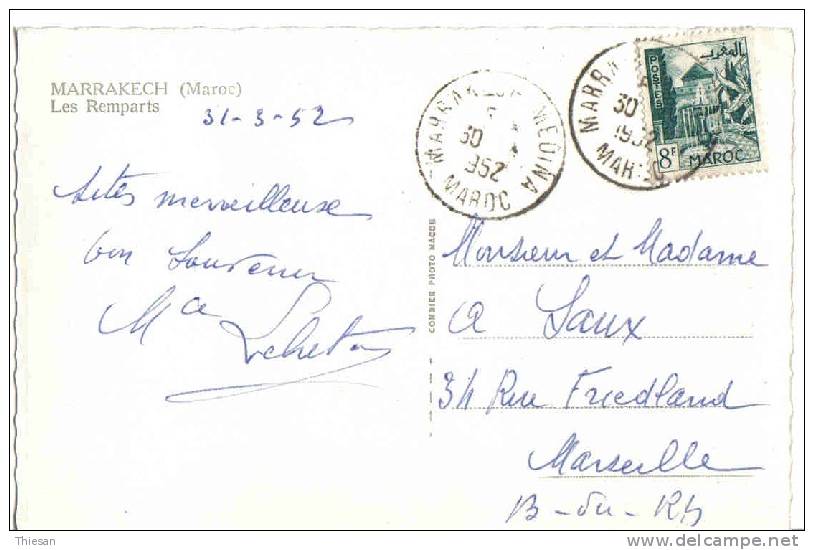 MARRAKECH (Maroc)
Les Remparts
31-3-52
Sites merveilleuse
bon Souvenir
COMBIER PHOTO MACON
MARRAKECH-MEDINA
30
1952
MAROC
MARRA
30
1952
MAROC
POSTES
المغرب
8F
MAROC
Monsieur et Madame
Saux
34 Rue Friedland
Marseille
B-du-Rh
Thiesan
delcampe.net